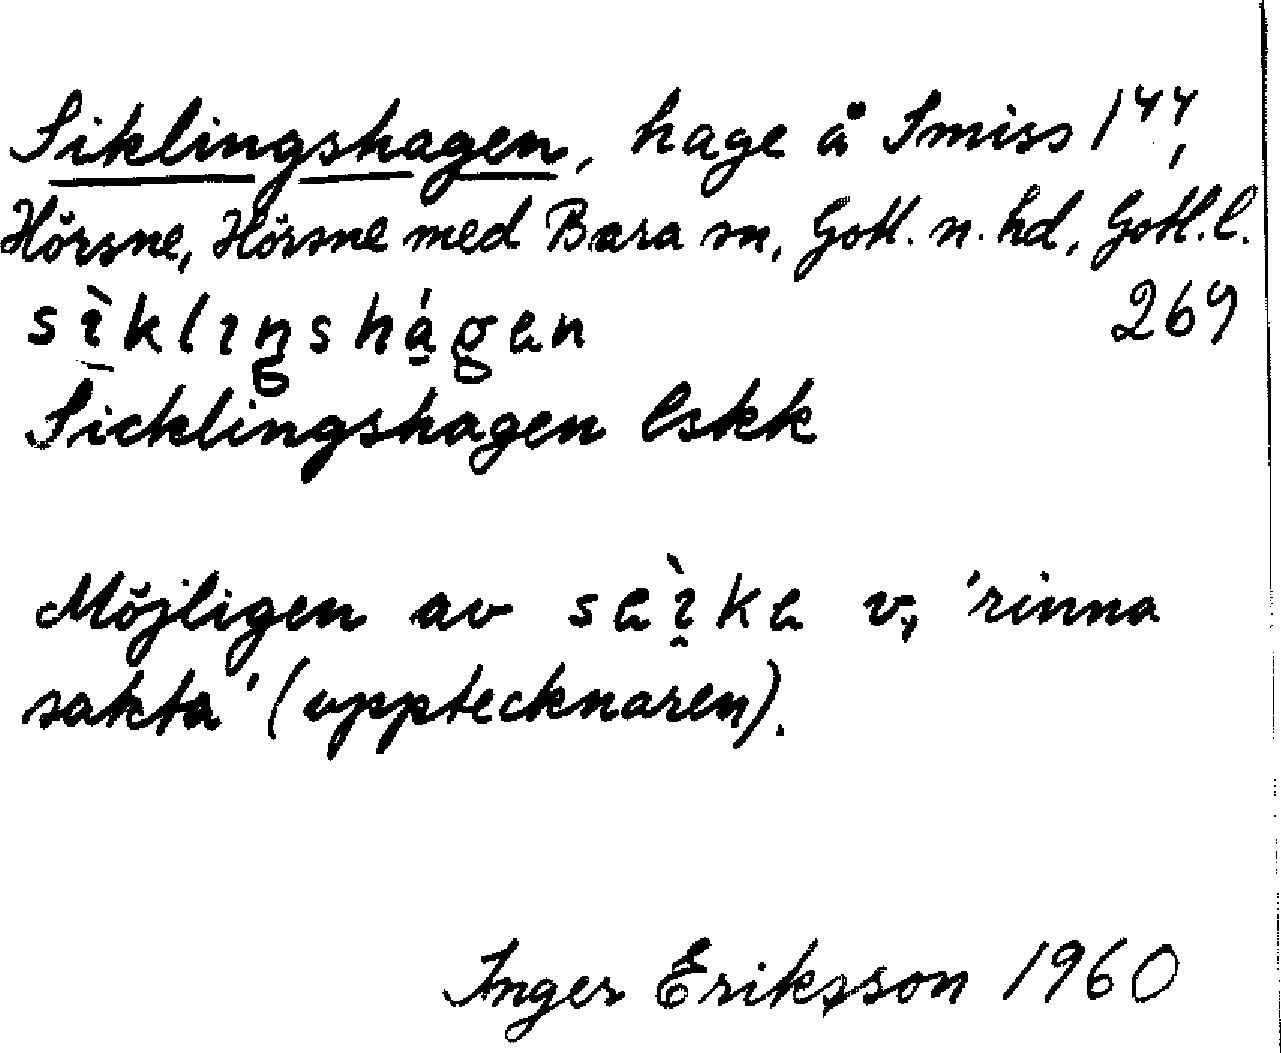 Siklingshagen, hage å Smiss 1⁴⁴,
Hörsne, Hörsne med Bara sn, Gotl. n. hd, Gotl. l.
sìklıŋshágen 269
Sicklingshagen Eskk
Möjligen av seìke v., 'rinna
sakta' (upptecknaren).
Inger Eriksson 1960